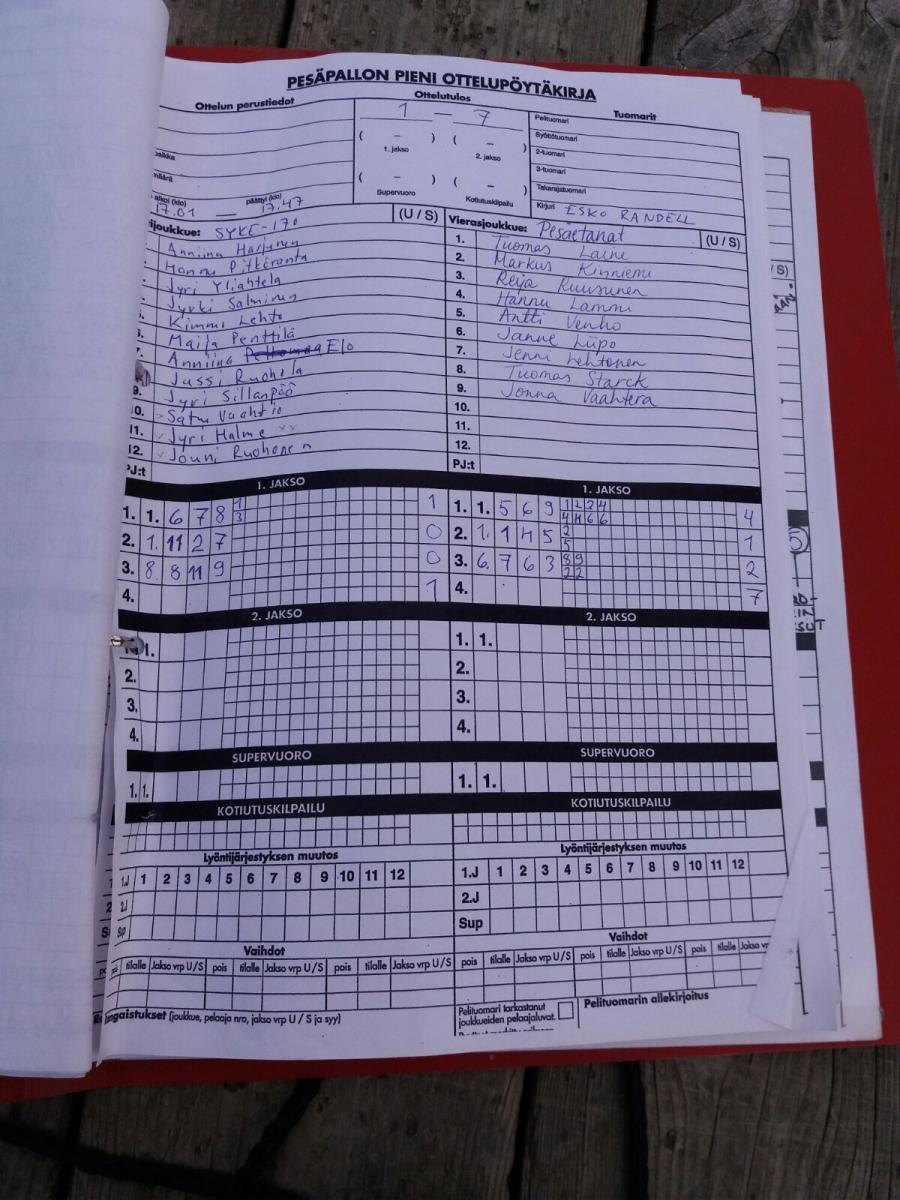 PESÄPALLON PIENI OTTELUPÖYTÄKIRJA
Ottelun perustiedot
Ottelutulos
Tuomarit
1 — 7
( – ) ( – )
1. jakso 2. jakso
( – ) ( – )
Supervuoro Kotiutuskilpailu
Pelituomari
Syöttötuomari
2-tuomari
3-tuomari
Takarajatuomari
Kirjuri ESKO RANDELL
(klo) päättyi (klo)
17.01 — 17.47
SYKE-170 (U / S)
Anniina
Hannu Pitkäranta
Jyri Yliahtela
Jyrki Salminen
Kimmo Lehto
Maija Penttilä
Anniina Elo
Jussi Ruohola
9. Jyri Sillanpää
10. Satu Vaahtio
11. Jyri Halme xx
12. Jouni Ruohonen
PJ:t
Vierasjoukkue: Pesäetanat (U / S)
1. Tuomas Laine
2. Markus Kinniemi
3. Reija Ruusunen
4. Hannu Lammi
5. Antti Venho
6. Janne Liipo
7. Jenni Lehtonen
8. Tuomas Starck
9. Jonna Vaahtera
10.
11.
12.
PJ:t
1. JAKSO
1. 1. 6 7 8 1 3 1
2. 1. 11 2 7 0
3. 8. 8 11 9 0
4. 1
1. JAKSO
1. 1. 5 6 9 1 2 3 4 4 4 6 6 4
2. 1. 1 4 5 2 5 1
3. 6. 7 6 3 8 9 2 2 2
4. 7
2. JAKSO
1.
2.
3.
4.
2. JAKSO
1. 1.
2.
3.
4.
SUPERVUORO
1. 1.
SUPERVUORO
1. 1.
KOTIUTUSKILPAILU
KOTIUTUSKILPAILU
Lyöntijärjestyksen muutos
1.J 1 2 3 4 5 6 7 8 9 10 11 12
2.J
Sup
Lyöntijärjestyksen muutos
1.J 1 2 3 4 5 6 7 8 9 10 11 12
2.J
Sup
Vaihdot
tilalle Jakso vrp U/S pois tilalle Jakso vrp U/S pois tilalle Jakso vrp U/S
Vaihdot
pois tilalle Jakso vrp U/S pois tilalle Jakso vrp U/S pois tilalle Jakso vrp
(joukkue, pelaaja nro, jakso vrp U / S ja syy)
Pelituomari tarkastanut
joukkueiden pelaajaluvat.
Pelituomarin allekirjoitus